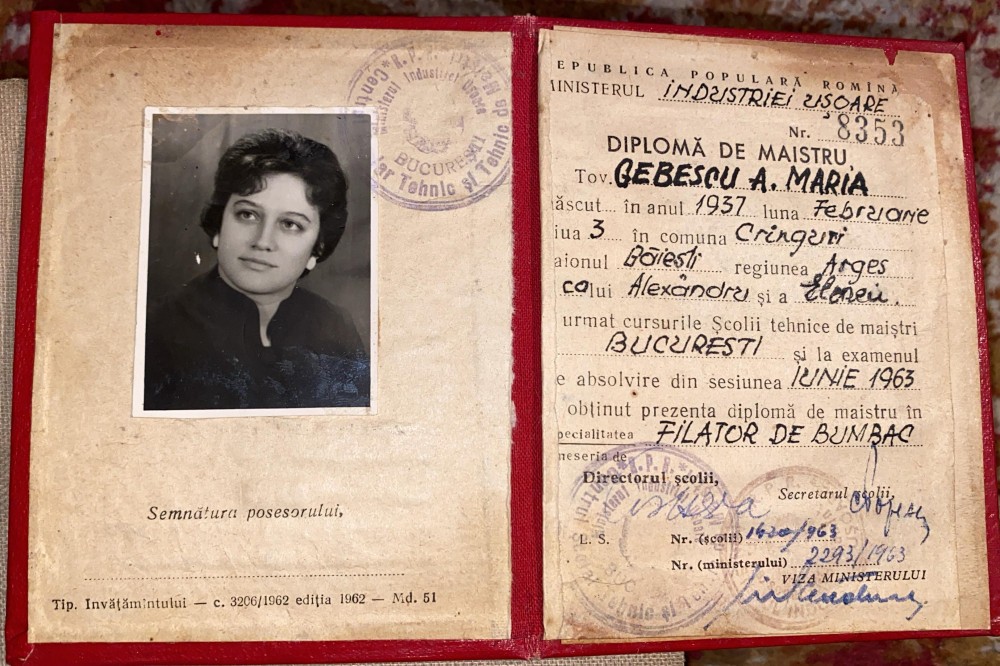 R.P.R.
Ministerul Industriei Ușoare
BUCUREȘTI
lar Tehnic și Tehnic de
Semnătura posesorului,
Tip. Invățămîntului — c. 3206/1962 ediția 1962 — Md. 51
EPUBLICA POPULARĂ ROMÎNĂ
MINISTERUL INDUSTRIEI UȘOARE
Nr. 8353
DIPLOMĂ DE MAISTRU
Tov. GEBESCU A. MARIA
ăscut în anul 1937 luna Februarie
iua 3 în comuna Crînguri
aionul Găiești regiunea Argeș
ca lui Alexandru și a Elenei.
urmat cursurile Școlii tehnice de maiștri
BUCUREȘTI și la examenul
e absolvire din sesiunea IUNIE 1963
obținut prezenta diplomă de maistru în
pecialitatea FILATOR DE BUMBAC
meseria de
Directorul școlii,
Secretarul școlii,
L. S. Nr. (școlii) 1420/963
Nr. (ministerului) 2293/1963
VIZA MINISTERULUI